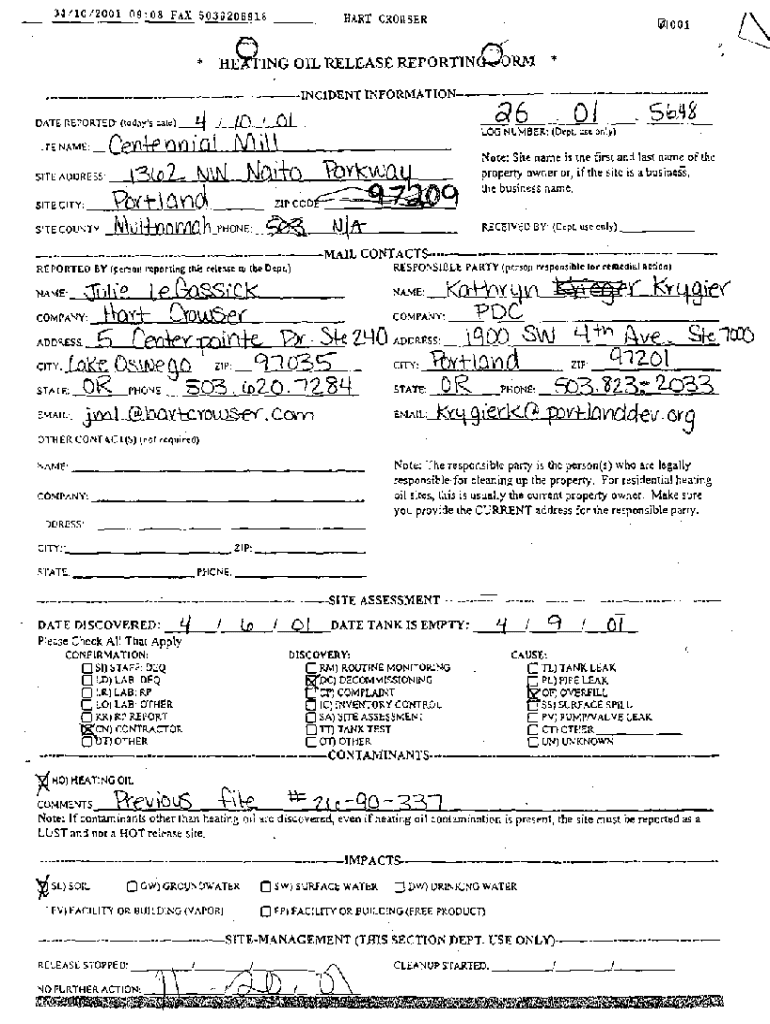 04/10/2001 09:08 FAX 5036206918 HART CROWSER 001
* HEATING OIL RELEASE REPORTING FORM *
INCIDENT INFORMATION
DATE REPORTED: (today's date) 4 / 10 / 01 26 01 5648
LOG NUMBER: (Dept. use only)
TE NAME: Centennial Mill
SITE ADDRESS: 1362 NW Naito Parkway
Note: Site name is the first and last name of the
property owner or, if the site is a business,
the business name.
SITE CITY: Portland ZIP CODE 97209
SITE COUNTY Multnomah PHONE: 503 N/A RECEIVED BY: (Dept. use only)
MAIL CONTACTS
REPORTED BY (person reporting this release to the Dept.) RESPONSIBLE PARTY (person responsible for remedial action)
NAME: Julie LeGassick NAME: Kathryn Krygier
COMPANY: Hart Crowser COMPANY: PDC
ADDRESS 5 Centerpointe Dr. Ste 240 ADDRESS: 1900 SW 4th Ave. Ste 7000
CITY: Lake Oswego ZIP: 97035 CITY: Portland ZIP 97201
STATE: OR PHONE 503.620.7284 STATE: OR PHONE: 503.823-2033
EMAIL: jml@hartcrowser.com EMAIL: krygierk@portlanddev.org
OTHER CONTACT(S) (not required)
NAME:
COMPANY:
DDRESS:
CITY: ZIP:
STATE PHONE:
Note: The responsible party is the person(s) who are legally
responsible for cleaning up the property. For residential heating
oil sites, this is usually the current property owner. Make sure
you provide the CURRENT address for the responsible party.
SITE ASSESSMENT
DATE DISCOVERED: 4 / 6 / 01 DATE TANK IS EMPTY: 4 / 9 / 01
Please Check All That Apply
CONFIRMATION: DISCOVERY: CAUSE:
SI) STAFF: DEQ RM) ROUTINE MONITORING TL) TANK LEAK
LD) LAB: DEQ DC) DECOMMISSIONING PL) PIPE LEAK
LR) LAB: RP CP) COMPLAINT OF) OVERFILL
LO) LAB: OTHER IC) INVENTORY CONTROL SS) SURFACE SPILL
RR) RP REPORT SA) SITE ASSESSMENT PV) PUMP/VALVE LEAK
CN) CONTRACTOR TT) TANK TEST OT) OTHER
OT) OTHER OT) OTHER UN) UNKNOWN
CONTAMINANTS
HO) HEATING OIL
COMMENTS Previous file # 26-90-337
Note: If contaminants other than heating oil are discovered, even if heating oil contamination is present, the site must be reported as a
LUST and not a HOT release site.
IMPACTS
SL) SOIL GW) GROUNDWATER SW) SURFACE WATER DW) DRINKING WATER
FV) FACILITY OR BUILDING (VAPOR) FP) FACILITY OR BUILDING (FREE PRODUCT)
SITE-MANAGEMENT (THIS SECTION DEPT. USE ONLY)
RELEASE STOPPED: / / CLEANUP STARTED: / /
NO FURTHER ACTION: